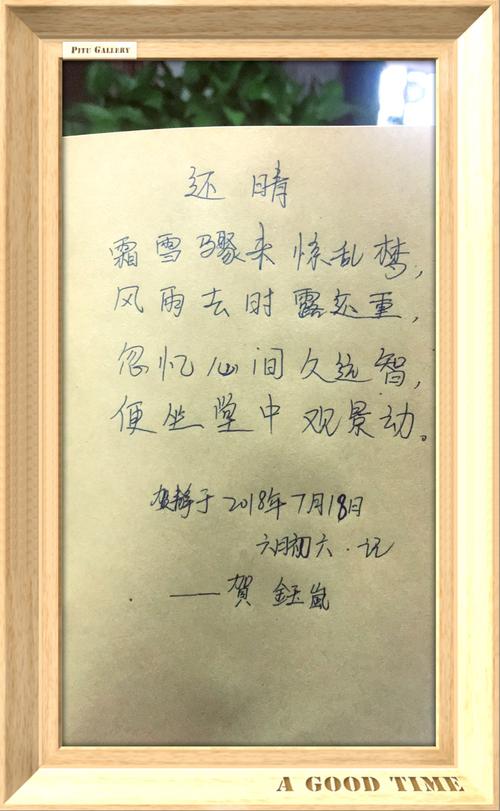 PITU GALLERY
还晴
霜雪骤来惊乱梦,
风雨去时露还重,
忽忆心间久远智,
便坐堂中观景动。
贺静于2018年7月18日
六月初六.记
——贺 钰嵐
A GOOD TIME